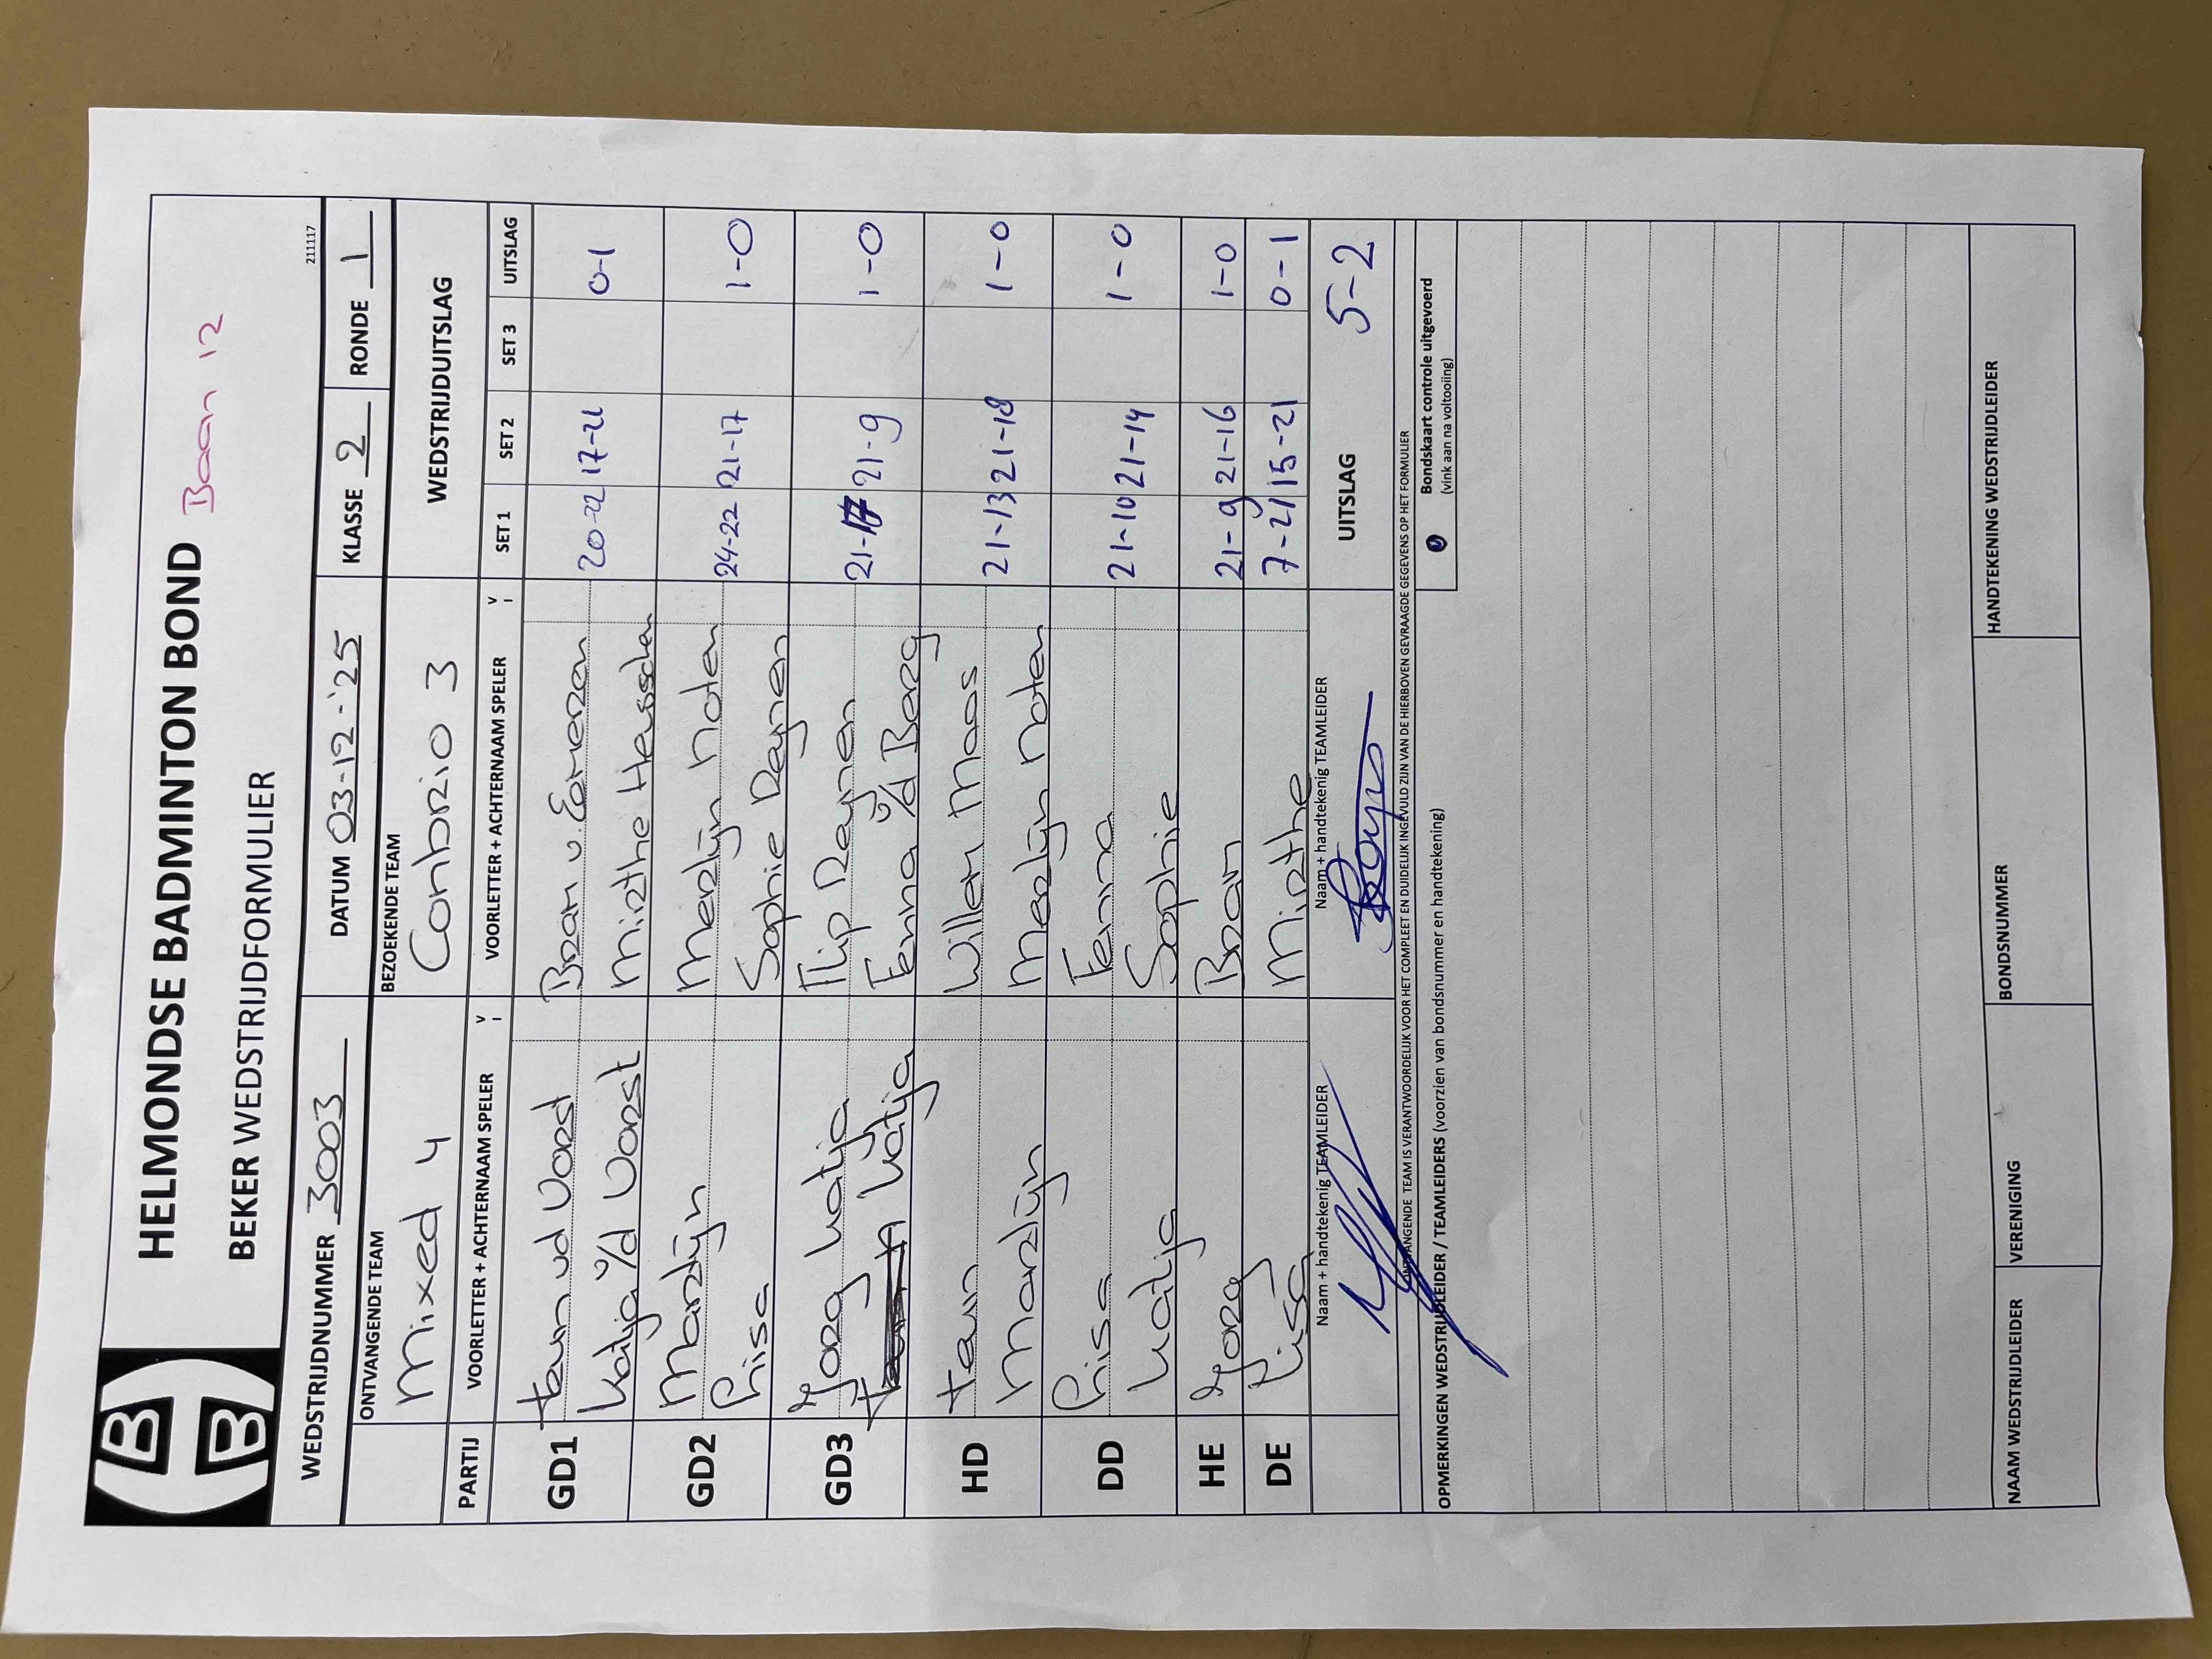 HELMONDSE BADMINTON BOND Baan 12
BEKER WEDSTRIJDFORMULIER 211117
WEDSTRIJDNUMMER 3003 DATUM 03-12-'25 KLASSE 2 RONDE 1
ONTVANGENDE TEAM BEZOEKENDE TEAM
Mixed 4 Conbrio 3 WEDSTRIJDUITSLAG
PARTIJ VOORLETTER + ACHTERNAAM SPELER V I VOORLETTER + ACHTERNAAM SPELER V I SET 1 SET 2 SET 3 UITSLAG
GD1 teun vd Vorst Bram v. 20-22 17-21 0-1
Katja v/d Vorst Mirthe
GD2 Marlijn Merlijn Noten 24-22 21-17 1-0
Lisa Sophie Reynen
GD3 Jorg Katja Flip Reynen 21-17 21-9 1-0
Katja Fenna v/d Berg
HD teun Willem Maas 21-13 21-18 1-0
Marlijn Merlijn Noten
DD Lisa Fenna 21-10 21-14 1-0
Katja Sophie
HE Jorg Bram 21-9 21-16 1-0
DE Lisa Mirthe 7-21 15-21 0-1
Naam + handtekenig TEAMLEIDER Naam + handtekenig TEAMLEIDER UITSLAG 5-2
ONTVANGENDE TEAM IS VERANTWOORDELIJK VOOR HET COMPLEET EN DUIDELIJK INGEVULD ZIJN VAN DE HIERBOVEN GEVRAAGDE GEGEVENS OP HET FORMULIER
Bondskaart controle uitgevoerd
(vink aan na voltooiing)
OPMERKINGEN WEDSTRIJDLEIDER / TEAMLEIDERS (voorzien van bondsnummer en handtekening)
NAAM WEDSTRIJDLEIDER VERENIGING BONDSNUMMER HANDTEKENING WEDSTRIJDLEIDER